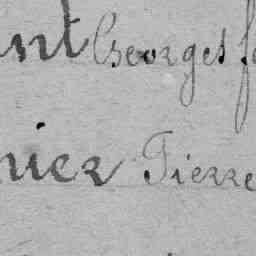 ant Georges f
nier Pierre